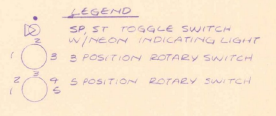 LEGEND
SP, ST TOGGLE SWITCH
W/NEON INDICATING LIGHT
2
1 3 3 POSITION ROTARY SWITCH
3
2 4 5 POSITION ROTARY SWITCH
1 5